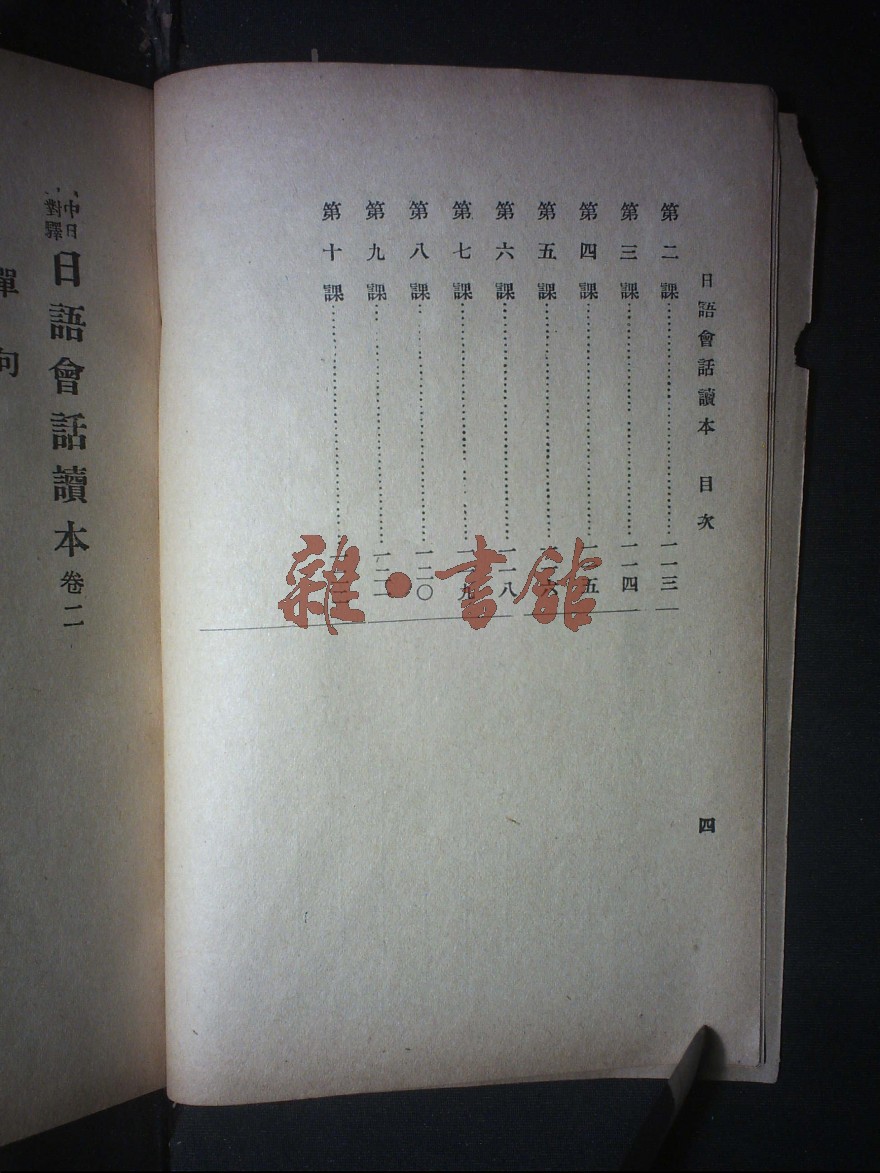 日語會話讀本 目次 四
第二課……一一三
第三課……一一四
第四課……一一五
第五課……一一六
第六課……一一八
第七課……一一九
第八課……一二〇
第九課……
第十課……
中日對譯 日語會話讀本 卷二
雜·書館